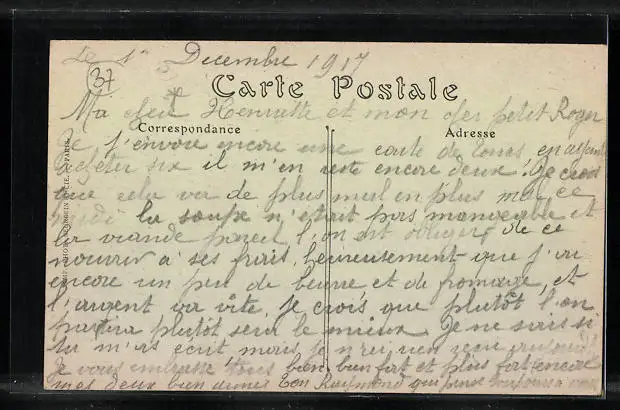 Le 1er Decembre 1917
37
Carte Postale
Ma cher Henriette et mon cher petit Roger
Correspondance
Adresse
Je t'envoie encore une carte de Tours en ayant
acheter six il m'en reste encore deux. Je crois
que cela va de plus mal en plus mal ce
midi la soupe n'était pas mangeable et
la viande pareil l'on est obliger de ce
nourrir a ses frais, heureusement que j'ai
encore un peu de beurre et de fromage, et
l'argent va vite, Je crois que plutôt l'on
partira plutôt sera le mieux. Je ne sais si
tu m'as écrit mais je n'ai rien reçu aujourd'hui
Je vous embrasse tous bien, bien fort et plus fort encore
mes deux bien aimés Ton Raymond qui pense toujours a vous